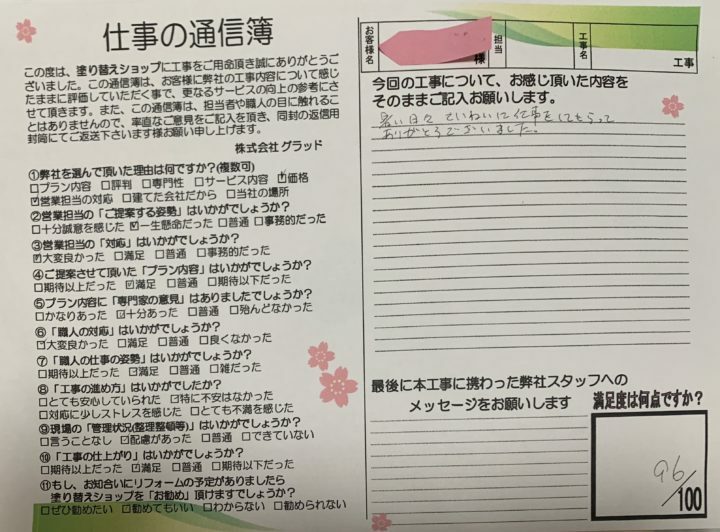 仕事の通信簿
この度は、塗り替えショップに工事をご用命頂き誠にありがとうご
ざいました。この通信簿は、お客様に弊社の工事内容について感じ
たままに評価していただく事で、更なるサービスの向上の参考にさ
せて頂きます。また、この通信簿は、担当者や職人の目に触れるこ
とはありませんので、率直なご意見をご記入を頂き、同封の返信用
封筒にてご返送下さいます様お願い申し上げます。
株式会社 グラッド
①弊社を選んで頂いた理由は何ですか?(複数可)
□プラン内容 □評判 □専門性 □サービス内容 ☑価格
☑営業担当の対応 □建てた会社だから □当社の場所
②営業担当の「ご提案する姿勢」はいかがでしょうか?
□十分誠意を感じた ☑一生懸命だった □普通 □事務的だった
③営業担当の「対応」はいかがでしょうか?
☑大変良かった □満足 □普通 □事務的だった
④ご提案させて頂いた「プラン内容」はいかがでしょうか?
□期待以上だった ☑満足 □普通 □期待以下だった
⑤プラン内容に「専門家の意見」はありましたでしょうか?
□かなりあった ☑十分あった □普通 □殆んどなかった
⑥「職人の対応」はいかがでしょうか?
☑大変良かった □満足 □普通 □良くなかった
⑦「職人の仕事の姿勢」はいかがでしょうか?
□期待以上だった ☑満足 □普通 □雑だった
⑧「工事の進め方」はいかがでしたか?
□とても安心していられた ☑特に不安はなかった
□対応に少しストレスを感じた □とても不満を感じた
⑨現場の「管理状況(整理整頓等)」はいかがでしょうか?
□言うことなし ☑配慮があった □普通 □できていない
⑩「工事の仕上がり」はいかがでしょうか?
□期待以上だった ☑満足 □普通 □期待以下だった
⑪もし、お知合いにリフォームの予定がありましたら
塗り替えショップを「お勧め」頂けますでしょうか?
□ぜひ勧めたい □勧めてもいい □わからない □勧められない
お客様名
様
担当
工事名
工事
今回の工事について、お感じ頂いた内容を
そのままご記入お願いします。
暑い日々 ていねいに仕事をしてもらって
ありがとうございました。
最後に本工事に携わった弊社スタッフへの
メッセージをお願いします
満足度は何点ですか?
96/100